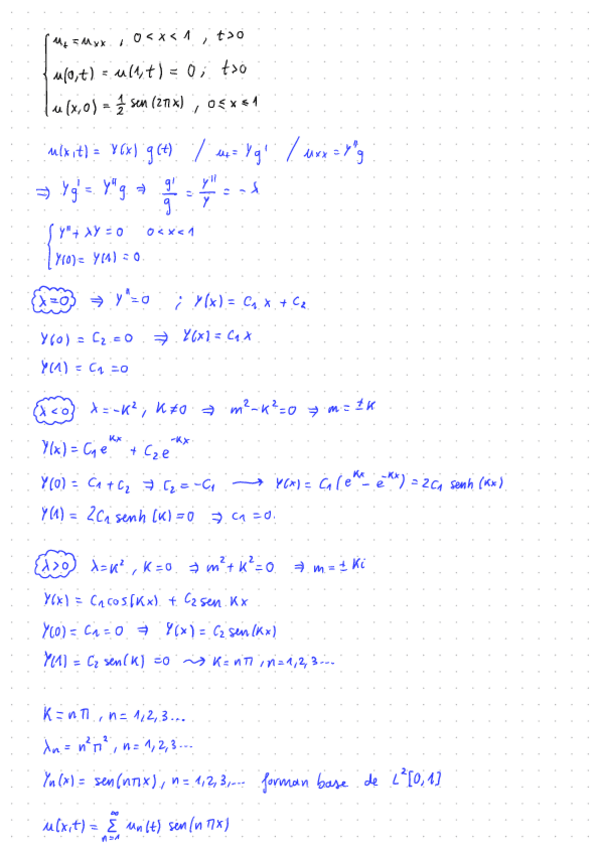 u_t = u_xx , 0 < x < 1 , t > 0
u(0,t) = u(1,t) = 0 ; t > 0
u(x,0) = 1/2 sen(2πx) , 0 ≤ x ≤ 1
u(x,t) = Y(x) g(t) / u_t = Y g' / u_xx = Y'' g
⇒ Y g' = Y'' g ⇒ g'/g = Y''/Y = -λ
Y'' + λY = 0 0 < x < 1
Y(0) = Y(1) = 0
λ=0 ⇒ Y'' = 0 ; Y(x) = C₁ x + C₂
Y(0) = C₂ = 0 ⇒ Y(x) = C₁ x
Y(1) = C₁ = 0
λ<0 λ = -K² , K ≠ 0 ⇒ m² - K² = 0 ⇒ m = ± K
Y(x) = C₁ e^{Kx} + C₂ e^{-Kx}
Y(0) = C₁ + C₂ ⇒ C₂ = -C₁ → Y(x) = C₁ (e^{Kx} - e^{-Kx}) = 2C₁ senh (Kx)
Y(1) = 2C₁ senh (K) = 0 ⇒ C₁ = 0.
λ>0 λ = K² , K = 0 ⇒ m² + K² = 0 ⇒ m = ± Ki
Y(x) = C₁ cos(Kx) + C₂ sen Kx
Y(0) = C₁ = 0 ⇒ Y(x) = C₂ sen(Kx)
Y(1) = C₂ sen(K) = 0 ⇝ K = nπ , n = 1,2,3...
K = nπ , n = 1,2,3...
λₙ = n²π² , n = 1,2,3...
Yₙ(x) = sen(nπx) , n = 1,2,3,... forman base de L²[0,1]
u(x,t) = ∑_{n=1}^{∞} uₙ(t) sen(nπx)